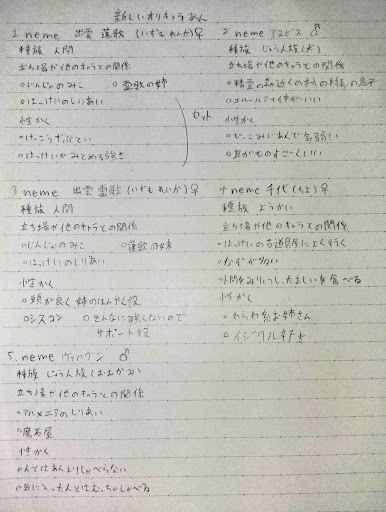 新しいオリキャラあん
1. neme 出雲 蓮歌 (いずも れんか)♀
種族 人間
立ち場や他のキャラとの関係
○じんじゃのみこ ○霊歌の姉
○はっけいのしりあい
性かく
○けっこうずぶとい
○はっけいがみとめる強さ
セット
2 neme アヌビス ♂
種族 じゅう人族(犬)
立ち場や他のキャラとの関係
○精霊の森近くの村の村長の息子
○エルールアと仲がいい
性かく
○ひっこみじあんで気弱い
○耳がものすごーくいい
3 neme 出雲 霊歌 (いずも れいか)♀
種族 人間
立ち場や他のキャラとの関係
○じんじゃのみこ ○蓮歌の妹
○はっけいのしりあい
性かく
○頭が良く姉のほんやく役
○シスコン ○そんなに強くないので
サポート役
4 neme 千代 (ちよ)♀
種族 ようかい
立ち場や他のキャラとの関係
○はっけいの古道具屋によく行く
○なぞが多い
○人間をみりょうし、たましいを食べる
性かく
○わらわ系お姉さん
○イジワル
5. neme ヴァルグン ♂
種族 じゅう人族(おおかみ)
立ち場や他のキャラとの関係
○アルメニアのしりあい
○魔石屋
性かく
○人とはあんまりしゃべらない
○気に入った人とはむっちゃしゃべる